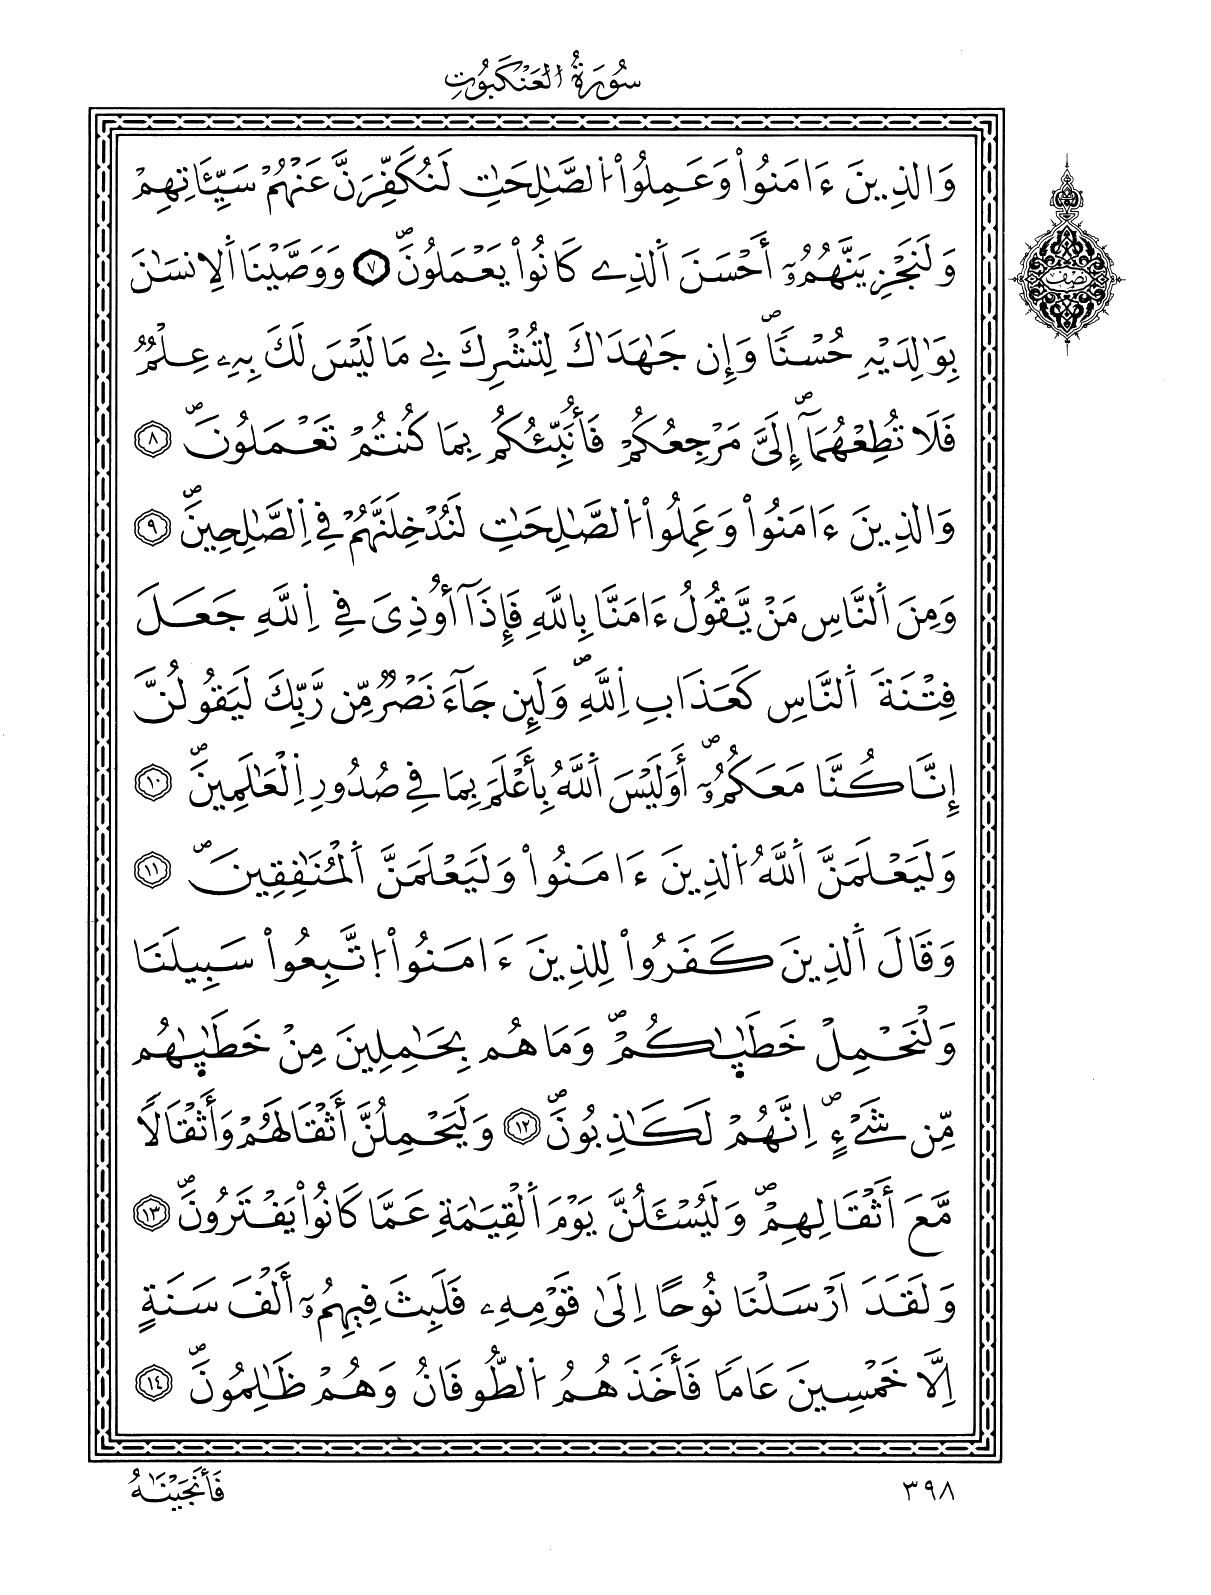 سُورَةُ الْعَنكَبُوتِ
وَالذِينَ ءَامَنُواْ وَعَمِلُواْ اُ۬لصَّٰلِحَٰتِ لَنُكَفِّرَنَّ عَنْهُمْ سَيِّـَٔاتِهِمْ
نصف
وَلَنَجْزِيَنَّهُمُۥٓ أَحْسَنَ اَ۬لذِے كَانُواْ يَعْمَلُونَۖ ٧ وَوَصَّيْنَا اَ۬لِانسَٰنَ
بِوَٰلِدَيْهِ حُسْناٗۖ وَإِن جَٰهَدَٰكَ لِتُشْرِكَ بِے مَا لَيْسَ لَكَ بِهِۦ عِلْمٞ
فَلَا تُطِعْهُمَآۖ إِلَيَّ مَرْجِعُكُمْ فَأُنَبِّئُكُم بِمَا كُنتُمْ تَعْمَلُونَۖ ٨
وَالذِينَ ءَامَنُواْ وَعَمِلُواْ اُ۬لصَّٰلِحَٰتِ لَنُدْخِلَنَّهُمْ فِے اِ۬لصَّٰلِحِينَۖ ٩
وَمِنَ اَ۬لنَّاسِ مَنْ يَّقُولُ ءَامَنَّا بِاللَّهِ فَإِذَآ أُوذِىَ فِے اِ۬للَّهِ جَعَلَ
فِتْنَةَ اَ۬لنَّاسِ كَعَذَابِ اِ۬للَّهِۖ وَلَئِن جَآءَ نَصْرٞ مِّن رَّبِّكَ لَيَقُولُنَّ
إِنَّا كُنَّا مَعَكُمُۥٓۖ أَوَلَيْسَ اَ۬للَّهُ بِأَعْلَمَ بِمَا فِے صُدُورِ اِ۬لْعَٰلَمِينَۖ ١٠
وَلَيَعْلَمَنَّ اَ۬للَّهُ اُ۬لذِينَ ءَامَنُواْ وَلَيَعْلَمَنَّ اَ۬لْمُنَٰفِقِينَۖ ١١
وَقَالَ اَ۬لذِينَ كَفَرُواْ لِلذِينَ ءَامَنُواْ اُ۪تَّبِعُواْ سَبِيلَنَا
وَلْنَحْمِلْ خَطَٰيَٰكُمْۖ وَمَا هُم بِحَٰمِلِينَ مِنْ خَطَٰيَٰهُم
مِّن شَےْءٍۖ اِنَّهُمْ لَكَٰذِبُونَۖ ١٢ وَلَيَحْمِلُنَّ أَثْقَالَهُمْ وَأَثْقَالاٗ
مَّعَ أَثْقَالِهِمْۖ وَلَيُسْـَٔلُنَّ يَوْمَ اَ۬لْقِيَٰمَةِ عَمَّا كَانُواْ يَفْتَرُونَۖ ١٣
وَلَقَدَ اَرْسَلْنَا نُوحاً اِلَىٰ قَوْمِهِۦ فَلَبِثَ فِيهِمُۥٓ أَلْفَ سَنَةٍ
اِلَّا خَمْسِينَ عَاماٗ فَأَخَذَهُمُ اُ۬لطُّوفَانُ وَهُمْ ظَٰلِمُونَۖ ١٤
٣٩٨
فَأَنجَيْنَٰهُ